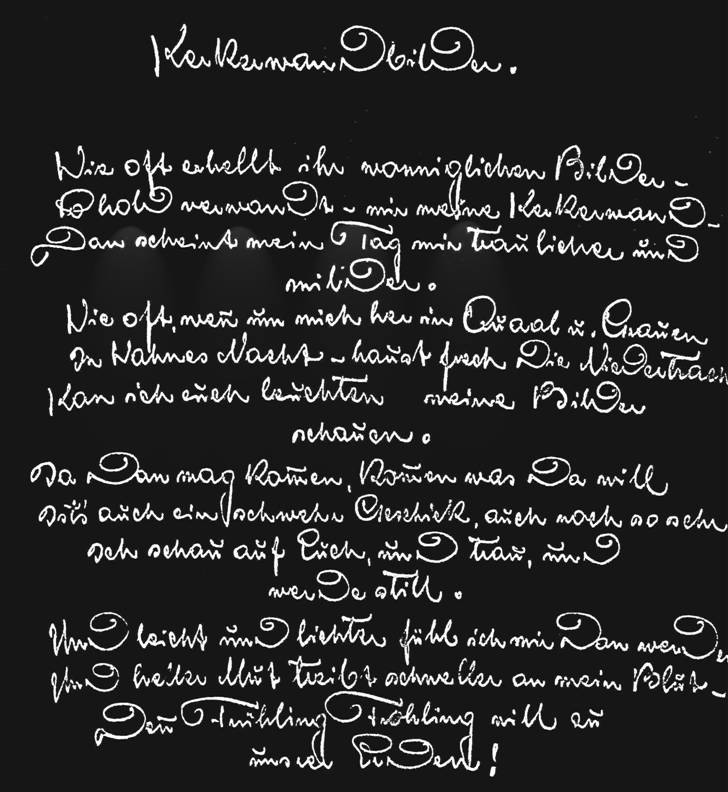 Kerkerwandbilder.
Wie oft erhellt ihr wonniglichen Bilder -
so hold verwandt - mir meine Kerkerwand -
Dan scheint mein Tag mir traulicher und
milder.
Wie oft, wen̄ um mich her in Quaal u. Grauen
In Wahnes Nacht - haust frech die Niedertracht
Kan ich euch leuchten meine Bilder
schauen.
Da Dan mag kom̄en, kom̄en was da will
auch ein schweres Geschick, auch noch so sehr
Ich schau auf Euch, und trau, und
werde still.
Und leicht und lichter fühl ich mir Dan werden
Und heiter Mut treibt schneller an mein Blut -
Den̄ Frühling Frühling will zu
unsrer Erden!